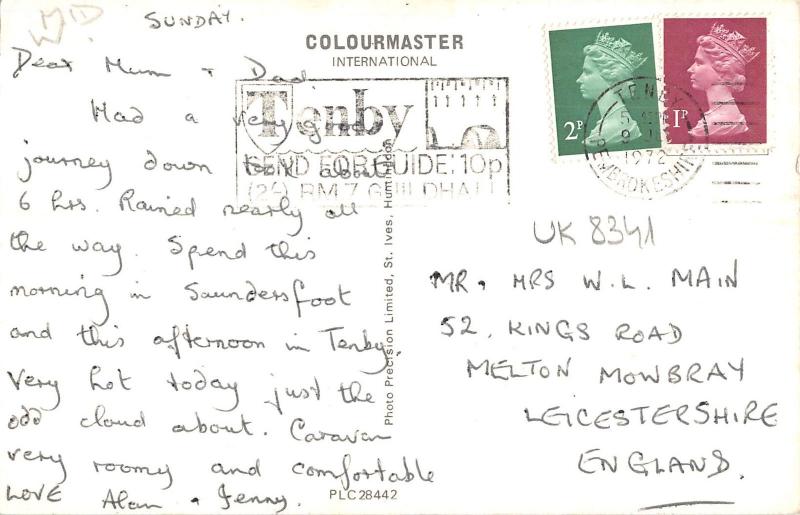 MID
W
SUNDAY.
Dear Mum + Dad
Had a very good
journey down took about
6 hrs. Rained nearly all
the way. Spend this
morning in Saundersfoot
and this afternoon in Tenby.
Very hot today just the
odd cloud about. Caravan
very roomy and comfortable
LOVE Alan + Jenny.
COLOURMASTER
INTERNATIONAL
Tenby
SEND FOR GUIDE: 10p
(2/-) RM 7 GUILDHALL
2P
1P
TENBY
1972
PEMBROKESHIRE
Photo Precision Limited, St. Ives, Huntingdon
UK 8341
MR. MRS W.L. MAIN
52, KINGS ROAD
MELTON MOWBRAY
LEICESTERSHIRE
ENGLAND.
PLC28442